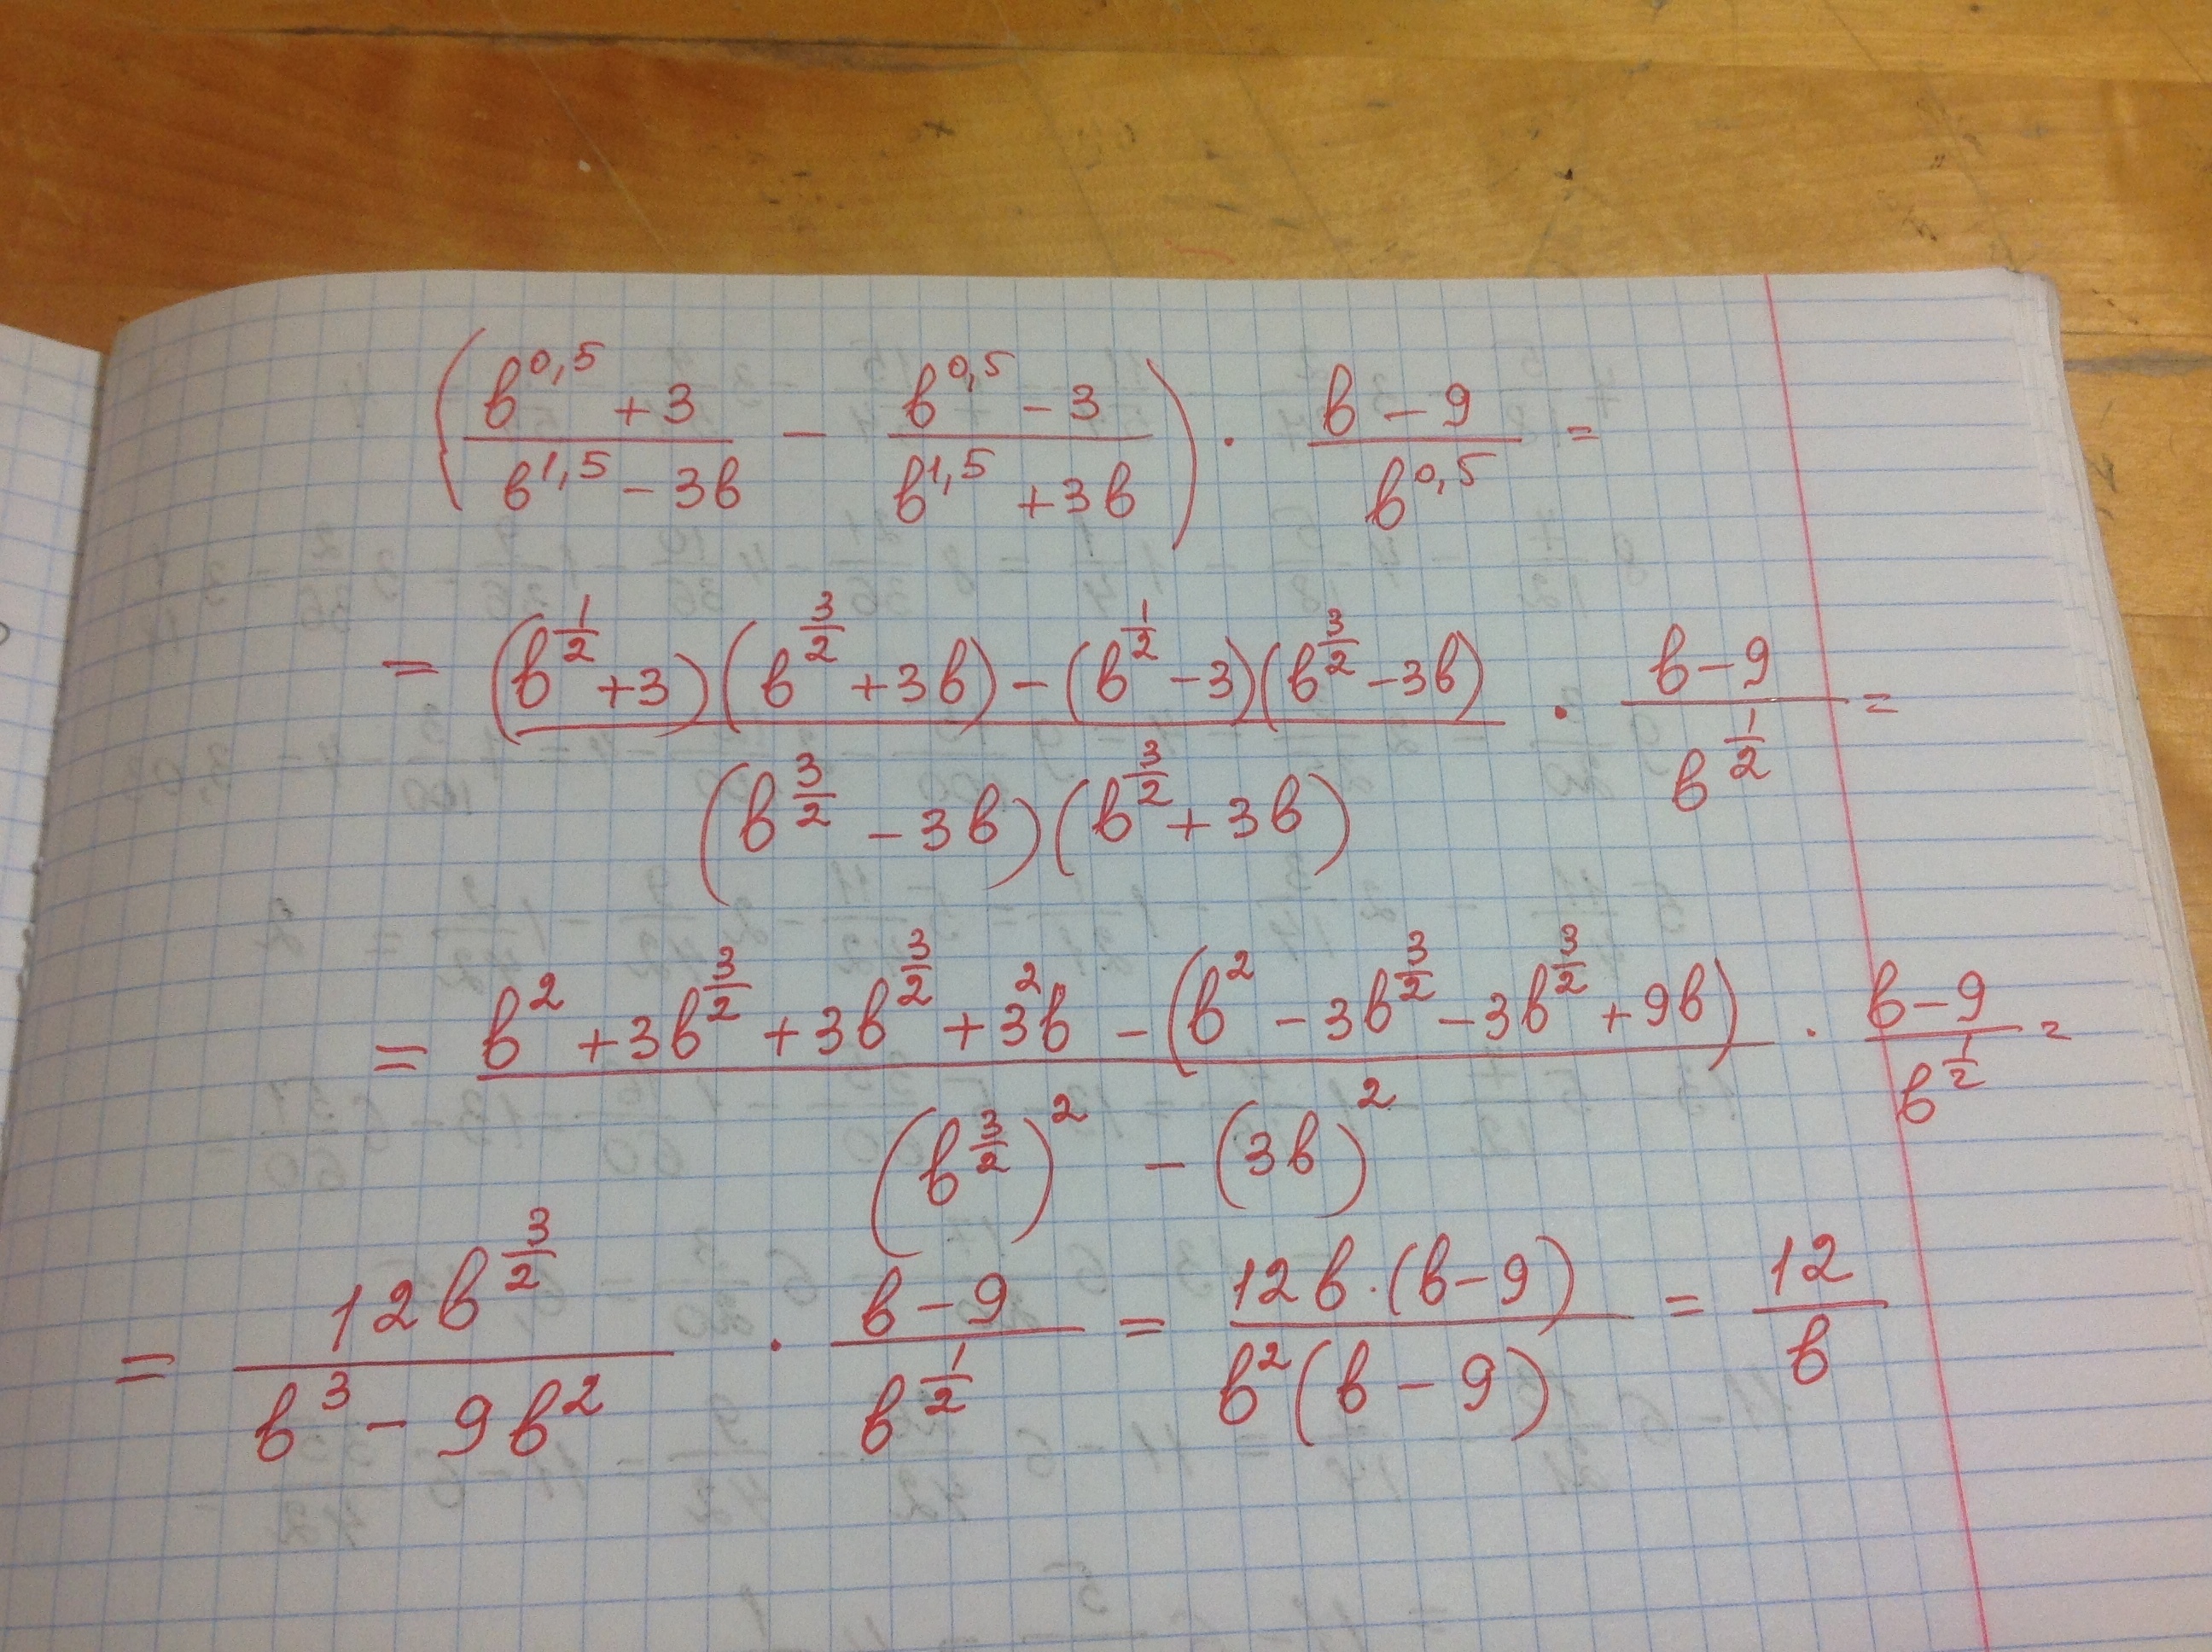 ((b^{0,5} + 3)/(b^{1,5} - 3b) - (b^{0,5} - 3)/(b^{1,5} + 3b)) · (b - 9)/(b^{0,5}) =
= ((b^{1/2} + 3)(b^{3/2} + 3b) - (b^{1/2} - 3)(b^{3/2} - 3b))/((b^{3/2} - 3b)(b^{3/2} + 3b)) · (b - 9)/(b^{1/2}) =
= (b^2 + 3b^{3/2} + 3b^{3/2} + 3^2b - (b^2 - 3b^{3/2} - 3b^{3/2} + 9b))/((b^{3/2})^2 - (3b)^2) · (b - 9)/(b^{1/2}) =
= (12b^{3/2})/(b^3 - 9b^2) · (b - 9)/(b^{1/2}) = (12b·(b - 9))/(b^2(b - 9)) = 12/b